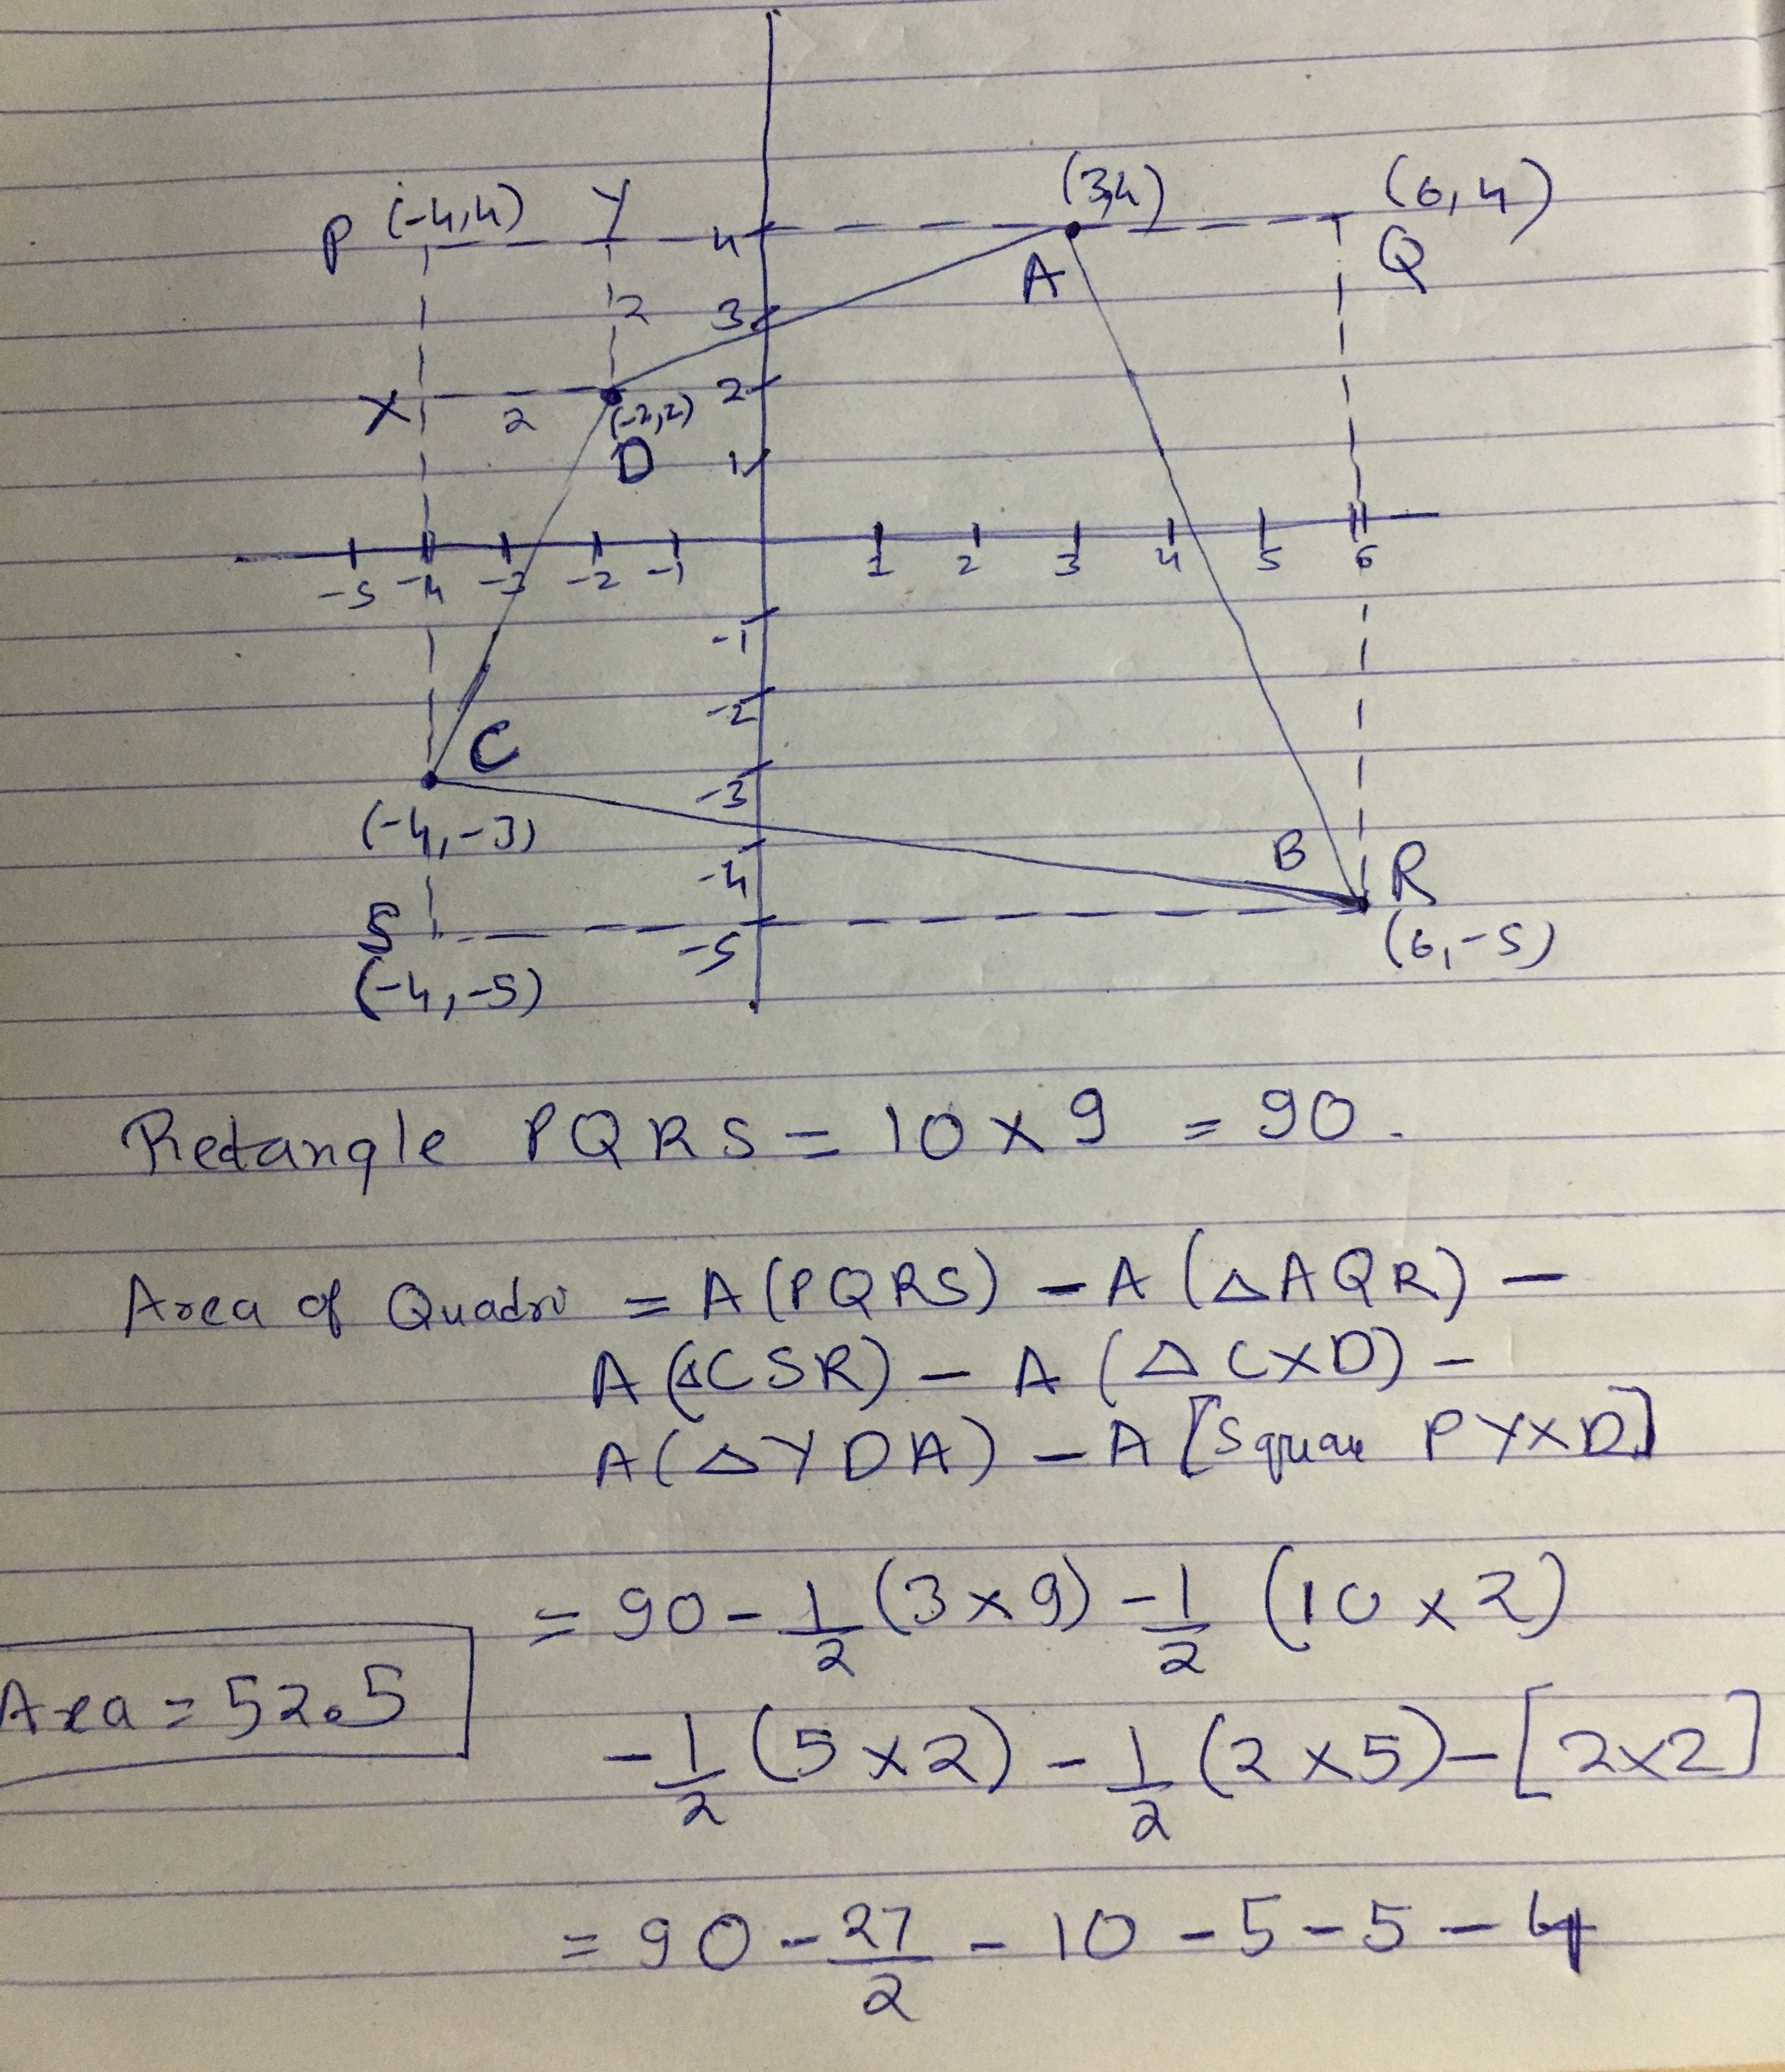 (3,4)
(6,4)
P (-4,4) Y
4
A
Q
2
3
X
2
(-2,2)
2
D
1
-5 -4 -3 -2 -1 1 2 3 4 5 6
-1
-2
C
-3
(-4,-3)
B
R
-4
S
-5
(6,-5)
(-4,-5)
Retangle PQRS = 10 x 9 = 90.
Area of Quadri = A(PQRS) - A(△AQR) -
A(△CSR) - A(△CXD) -
A(△YDA) - A[Square PYXD]
= 90 - 1/2 (3x9) - 1/2 (10 x 2)
Area = 52.5
- 1/2 (5 x 2) - 1/2 (2 x 5) - [2x2]
= 90 - 27/2 - 10 - 5 - 5 - 4